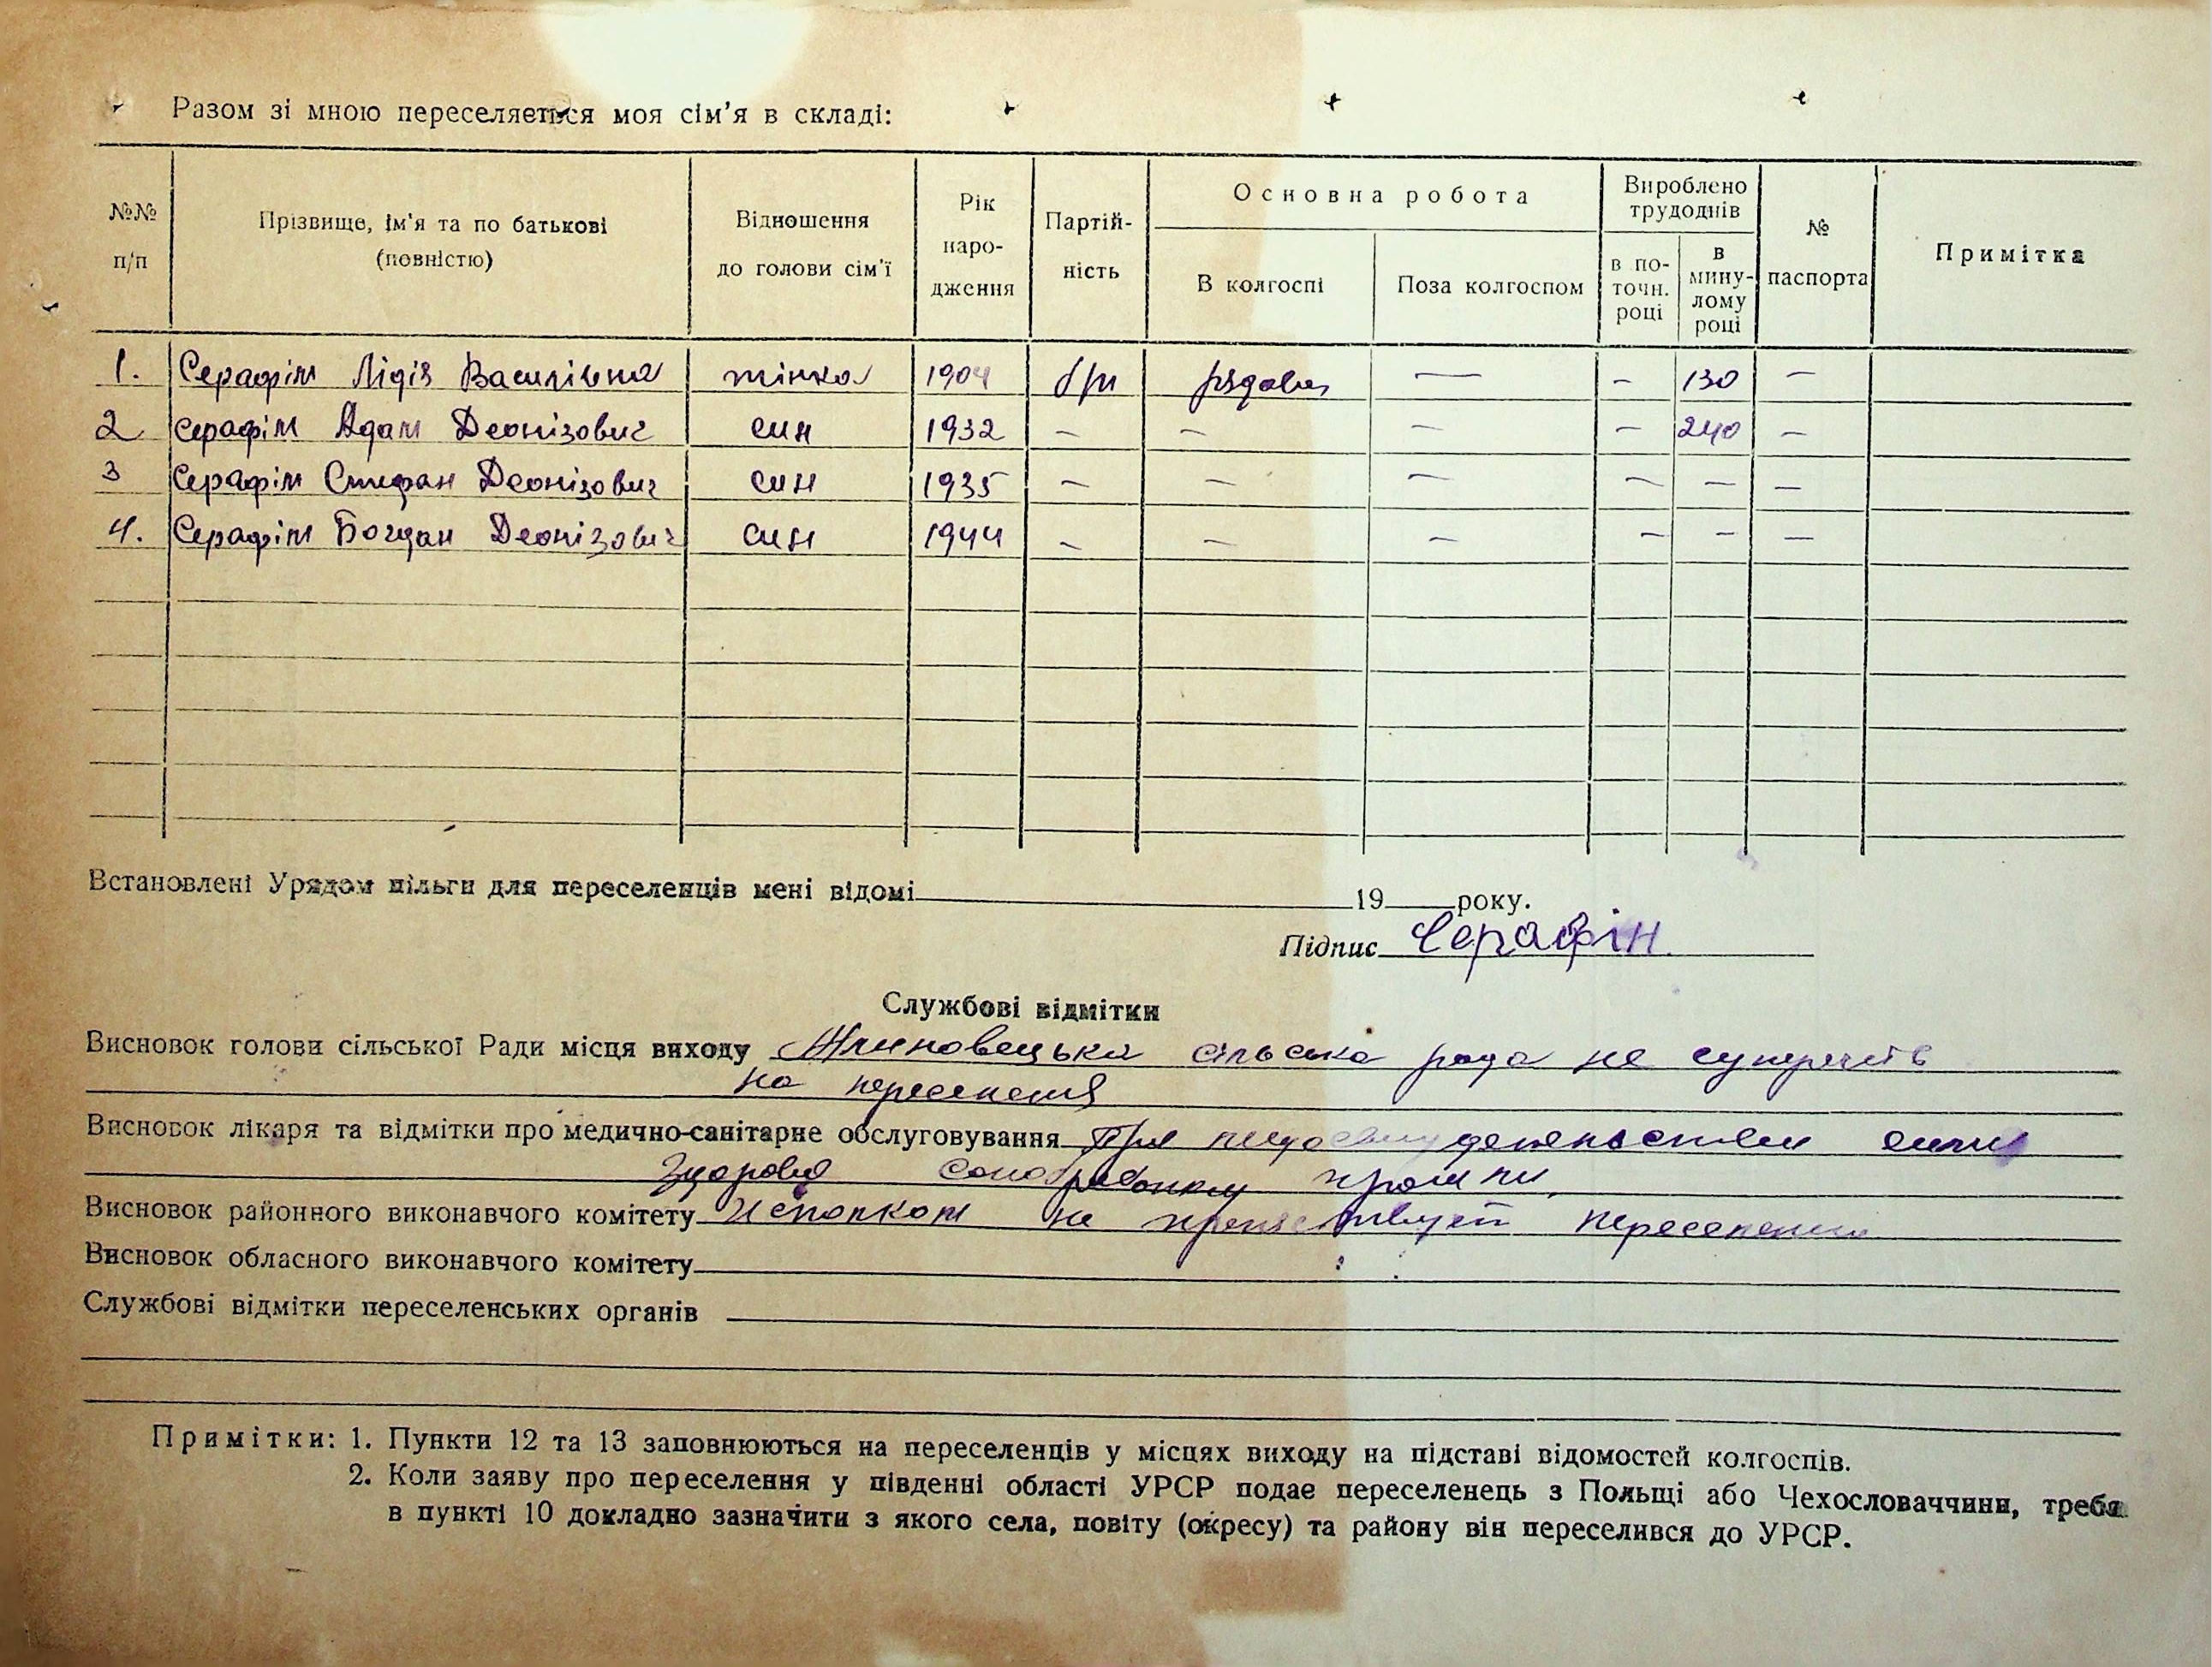 Разом зі мною переселяеться моя сім'я в складі:
№№ п/п | Прізвище, ім'я та по батькові (повністю) | Відношення до голови сім'ї | Рік народження | Партійність | Основна робота | Вироблено трудоднів | № паспорта | Примітка
В колгоспі | Поза колгоспом | в поточн. році | в минулому році
1. Серафім Лідія Василівна | жінка | 1904 | б/п | рядова | — | — | 130 | —
2 Серафім Адам Деонізович | син | 1932 | — | — | — | — | 240 | —
3 Серафім Стефан Деонізович | син | 1935 | — | — | — | — | — | —
4. Серафім Богдан Деонізович | син | 1944 | — | — | — | — | — | —
Встановлені Урядом пільги для переселенців мені відомі 19 року.
Підпис Серафін
Службові відмітки
Висновок голови сільської Ради місця виходу сільська рада не
на переселення
Висновок лікаря та відмітки про медично-санітарне обслуговування
Здорова
Висновок районного виконавчого комітету Исполком не препятствует переселению
Висновок обласного виконавчого комітету
Службові відмітки переселенських органів
Примітки: 1. Пункти 12 та 13 заповнюються на переселенців у місцях виходу на підставі відомостей колгоспів.
2. Коли заяву про переселення у південні області УРСР подає переселенець з Польщі або Чехословаччини, треба
в пункті 10 докладно зазначити з якого села, повіту (окресу) та району він переселився до УРСР.